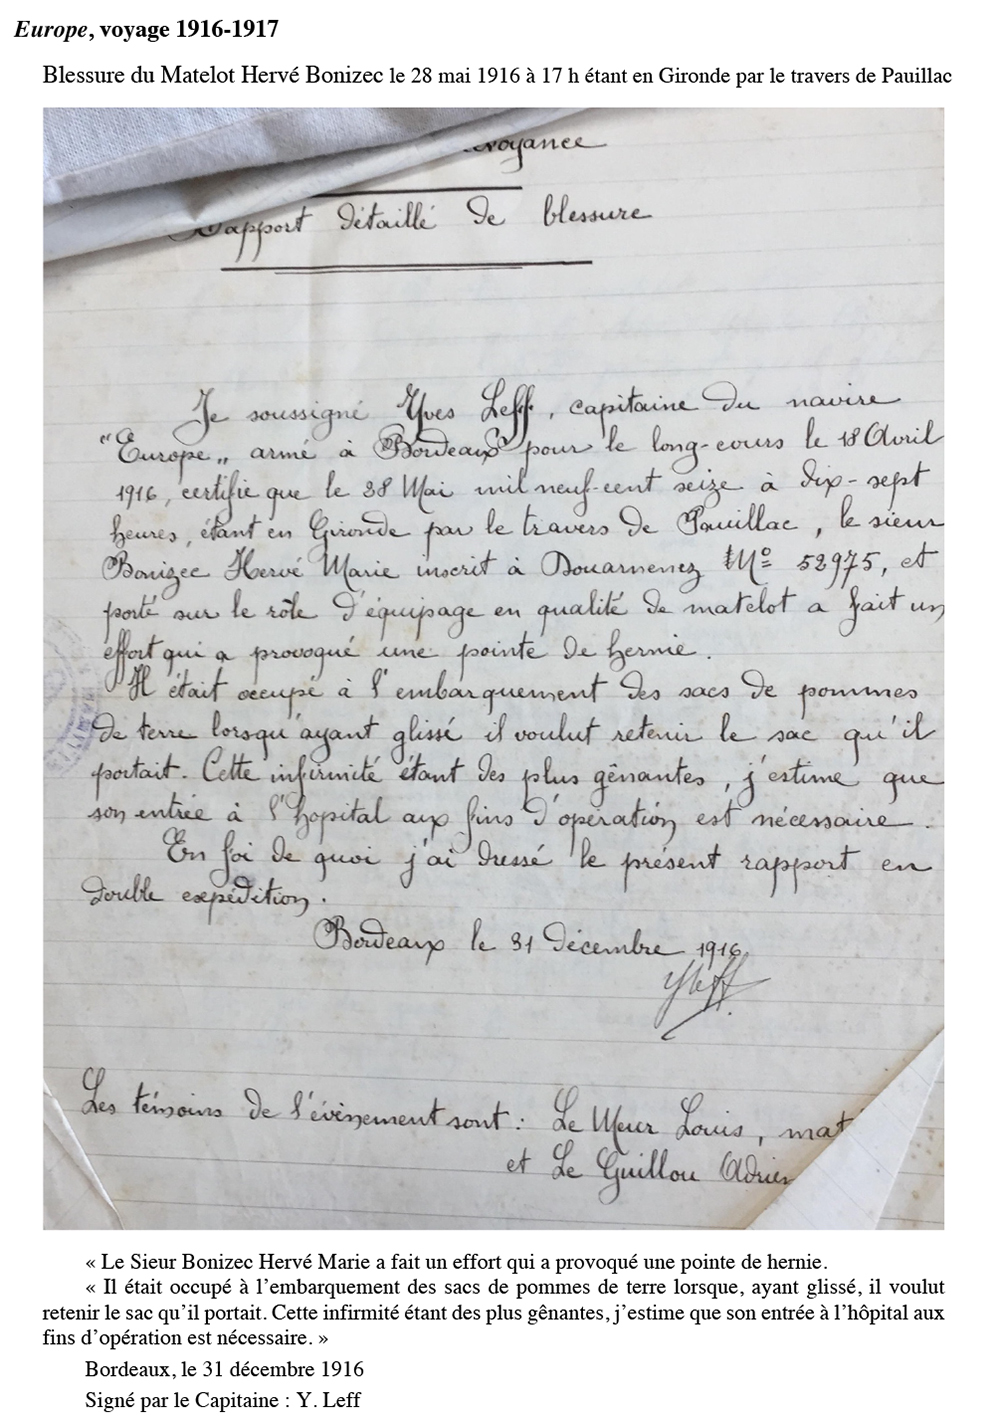 Europe, voyage 1916-1917
Blessure du Matelot Hervé Bonizec le 28 mai 1916 à 17 h étant en Gironde par le travers de Pauillac
voyance
Rapport détaillé de blessure
Je soussigné Yves Leff, capitaine du navire
"Europe„ armé à Bordeaux pour le long-cours le 18 Avril
1916, certifie que le 28 Mai mil neuf-cent seize à dix-sept
heures, étant en Gironde par le travers de Pauillac, le sieur
Bonizec Hervé Marie inscrit à Douarnenez Nº 52975, et
porté sur le rôle d'équipage en qualité de matelot a fait un
effort qui a provoqué une pointe de hernie.
Il était occupé à l'embarquement des sacs de pommes
de terre lorsqu'ayant glissé il voulut retenir le sac qu'il
portait. Cette infirmité étant des plus gênantes, j'estime que
son entrée à l'hopital aux fins d'opération est nécessaire.
En foi de quoi j'ai dressé le présent rapport en
double expédition.
Bordeaux le 31 décembre 1916
YLeff
Les témoins de l'évènement sont : Le Meur Louis, mat
et Le Guillou Adrien
« Le Sieur Bonizec Hervé Marie a fait un effort qui a provoqué une pointe de hernie.
« Il était occupé à l'embarquement des sacs de pommes de terre lorsque, ayant glissé, il voulut
retenir le sac qu'il portait. Cette infirmité étant des plus gênantes, j'estime que son entrée à l'hôpital aux
fins d'opération est nécessaire. »
Bordeaux, le 31 décembre 1916
Signé par le Capitaine : Y. Leff